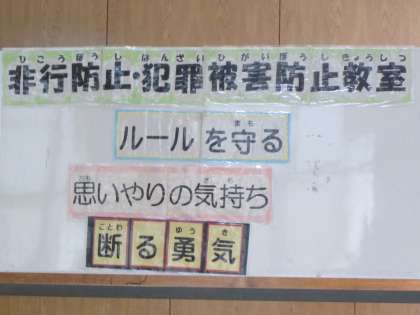 ひこうぼうし はんざいひがいぼうしきょうしつ
非行防止・犯罪被害防止教室
まも
ルールを守る
おも きも
思いやりの気持ち
ことわ ゆうき
断る勇気